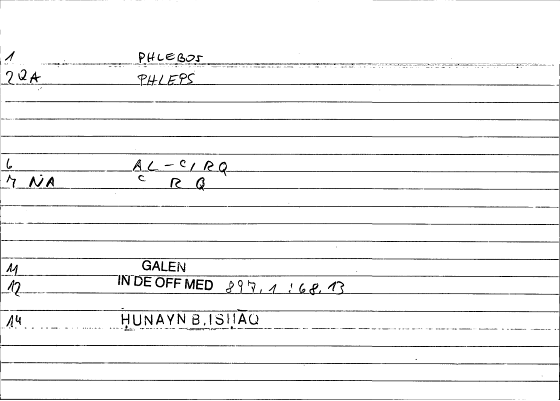 1 PHLEBOS
2 QA PHLEPS
6 AL-ᶜIRQ
7 NA ᶜ R Q
11 GALEN
12 IN DE OFF MED 897,1 : 68,13
14 ḤUNAYN B.ISḤĀQ